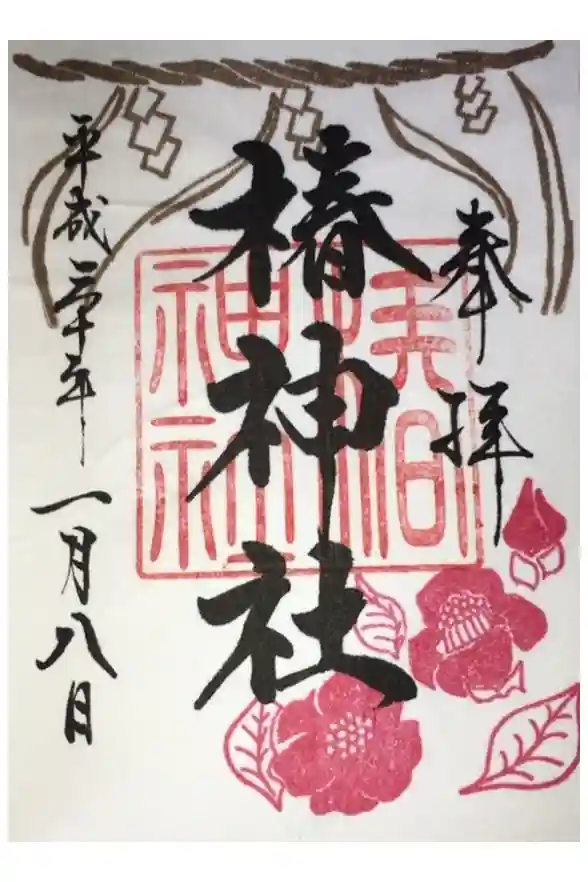 奉拝
椿神社
平成三十年一月八日